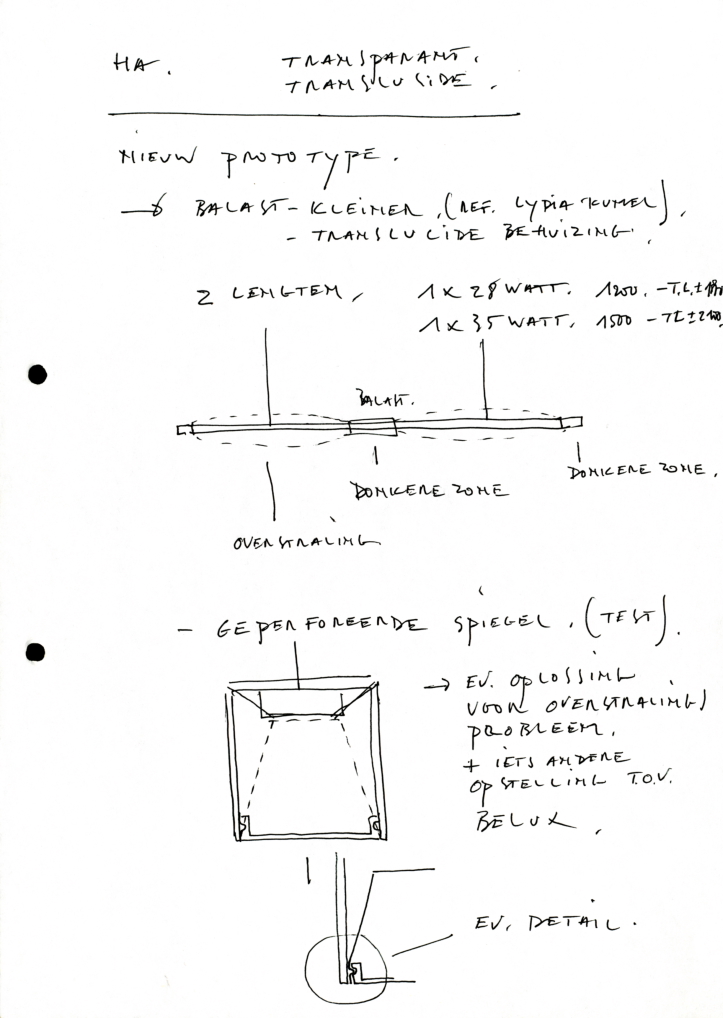 HA. TRANSPARANT.
TRANSLUCIDE.
NIEUW PROTOTYPE.
→ BALAST - KLEINER, (REF. LYDIA KUMEL),
- TRANSLUCIDE BEHUIZING.
2 LENGTEN, 1 x 28 WATT. 1200. - T.L. ±
1 x 35 WATT. 1500 - TL ±
BALAST.
DONKERE ZONE
DONKERE ZONE.
OVERSTRALING
- GEPERFOREERDE SPIEGEL, (TEST).
→ EV. OPLOSSING
VOOR OVERSTRALINGS
PROBLEEM.
+ IETS ANDERE
OPSTELLING T.O.V.
BELUX,
EV. DETAIL.